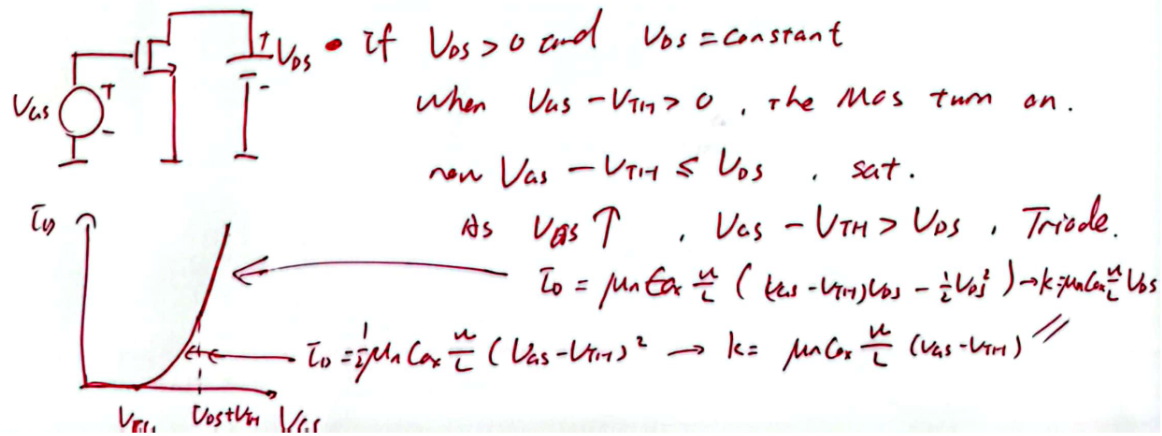 V_GS
+
-
+
-
V_DS • if V_DS > 0 and V_DS = constant
when V_GS - V_TH > 0 , the MOS turn on.
now V_GS - V_TH ≤ V_DS , sat.
As V_GS ↑ , V_GS - V_TH > V_DS , Triode.
I_D
I_D = μ_n C_ox W/L ( (V_GS - V_TH) V_DS - 1/2 V_DS² ) → k = μ_n C_ox W/L V_DS
I_D = 1/2 μ_n C_ox W/L (V_GS - V_TH)² → k = μ_n C_ox W/L (V_GS - V_TH) //
V_TH V_DS+V_TH V_GS